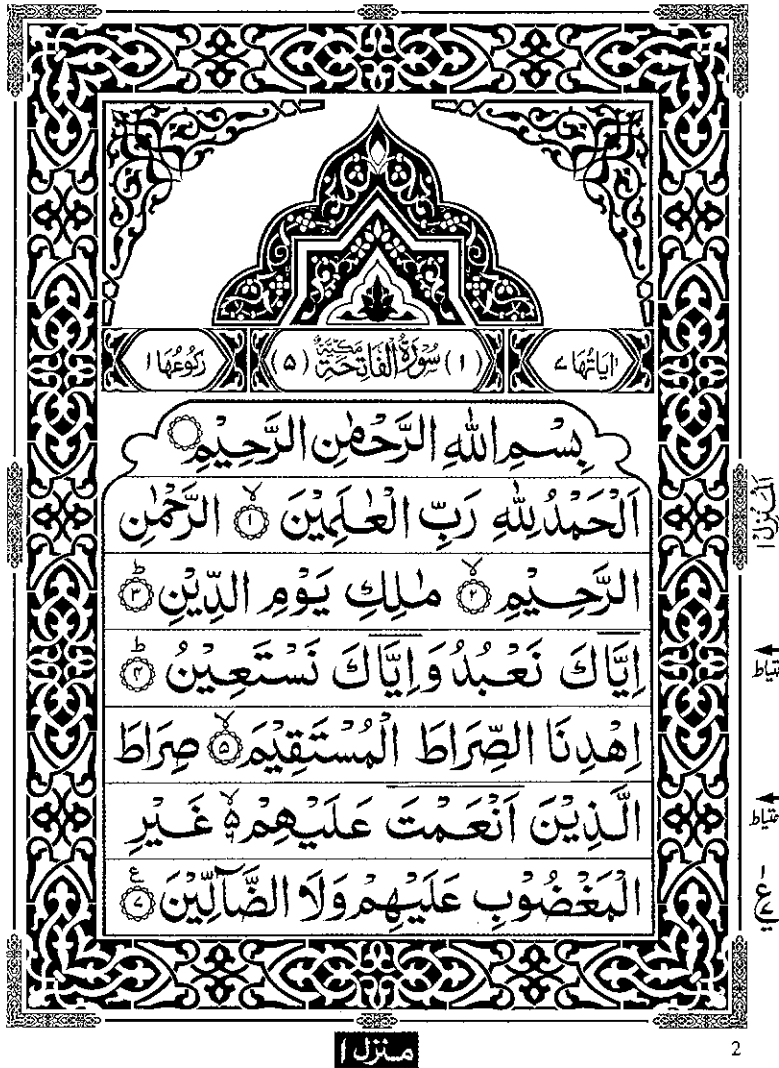 اٰيَاتُهَا ٧ (١) سُوْرَةُ الْفَاتِحَةِ مَكِّيَّةٌ (٥) رُكُوْعُهَا ١
بِسْمِ اللهِ الرَّحْمٰنِ الرَّحِيْمِ
اَلْحَمْدُ لِلّٰهِ رَبِّ الْعٰلَمِيْنَ ۙ﴿١﴾ الرَّحْمٰنِ
الرَّحِيْمِ ۙ﴿٢﴾ مٰلِكِ يَوْمِ الدِّيْنِ ؕ﴿٣﴾
اِيَّاكَ نَعْبُدُ وَاِيَّاكَ نَسْتَعِيْنُ ؕ﴿٤﴾
اِهْدِنَا الصِّرَاطَ الْمُسْتَقِيْمَ ۙ﴿٥﴾ صِرَاطَ
الَّذِيْنَ اَنْعَمْتَ عَلَيْهِمْ ۙ۵ غَيْرِ
الْمَغْضُوْبِ عَلَيْهِمْ وَلَا الضَّآلِّيْنَ ﴿٧﴾ ع
اَلْمَنْزِل ١
منزل ١
2